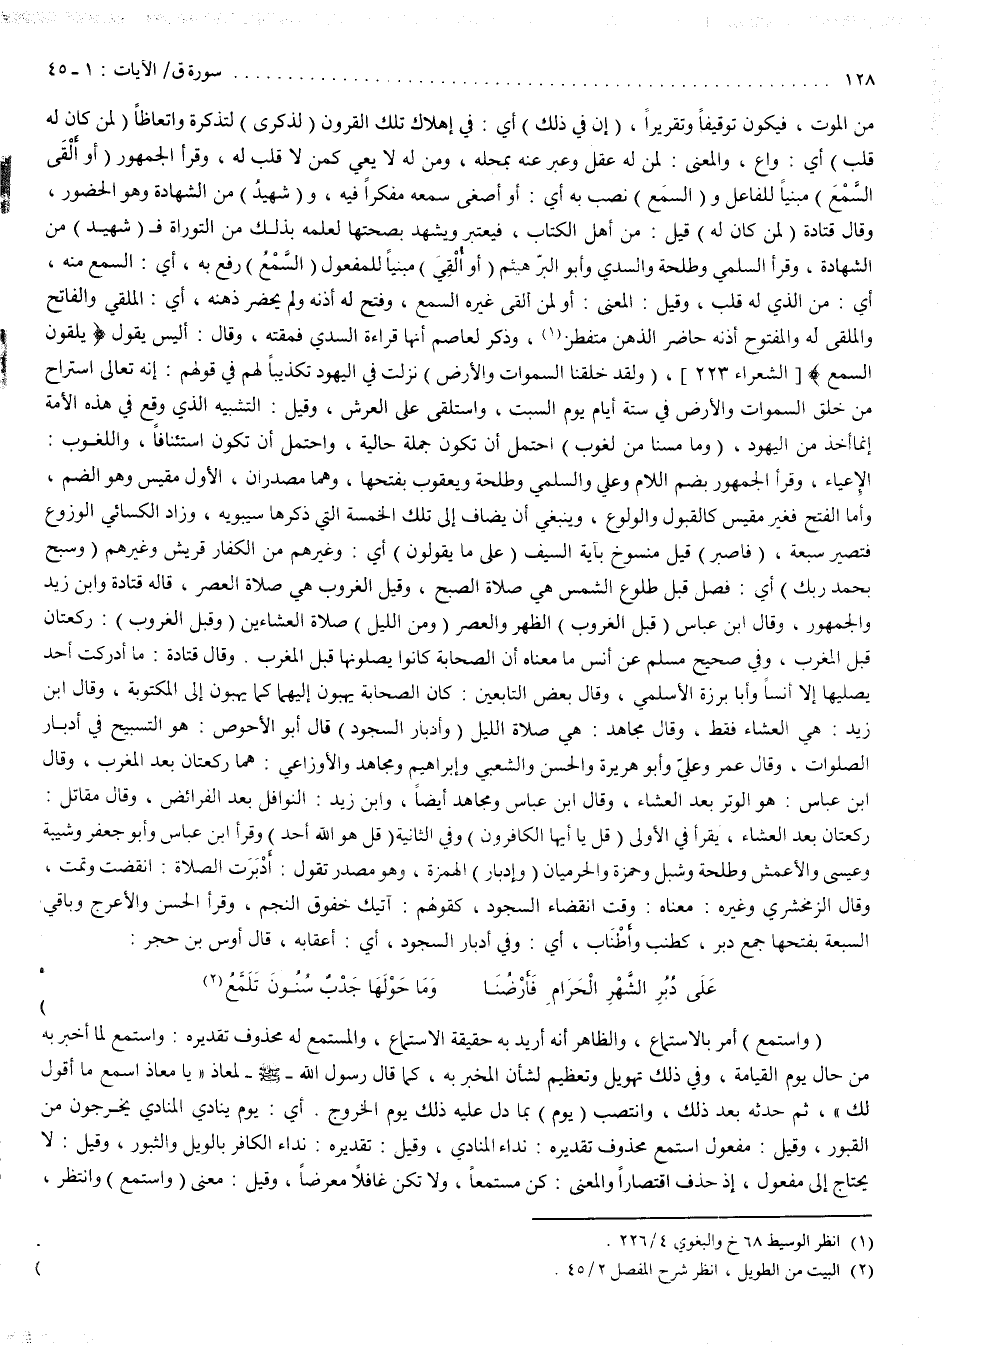 ١٢٨ ................................................ سورة ق/ الآيات : ١ ـ ٤٥
من الموت ، فيكون توقيفاً وتقريراً ، ( إن في ذلك ) أي : في إهلاك تلك القرون ( لذكرى ) لتذكرة واتعاظاً ( لمن كان له
قلب ) أي : واع ، والمعنى : لمن له عقل وعبر عنه بمحله ، ومن له لا يعي كمن لا قلب له ، وقرأ الجمهور ( أو أَلْقَى
السَّمْعَ ) مبنياً للفاعل و ( السمَع ) نصب به أي : أو أصغى سمعه مفكراً فيه ، و ( شهيدُ ) من الشهادة وهو الحضور ،
وقال قتادة ( لمن كان له ) قيل : من أهل الكتاب ، فيعتبر ويشهد بصحتها لعلمه بذلك من التوراة فـ ( شهيد ) من
الشهادة ، وقرأ السلمي وطلحة والسدي وأبو البرّ هيثم ( أو أُلْقِيَ ) مبنياً للمفعول ( السَّمْعُ ) رفع به ، أي : السمع منه ،
أي : من الذي له قلب ، وقيل : المعنى : أو لمن ألقى غيره السمع ، وفتح له أذنه ولم يحضر ذهنه ، أي : الملقي والفاتح
والملقى له والمفتوح أذنه حاضر الذهن متفطن(١) ، وذكر لعاصم أنها قراءة السدي فمقته ، وقال : أليس يقول ﴿ يلقون
السمع ﴾ [ الشعراء ٢٢٣ ] ، ( ولقد خلقنا السموات والأرض ) نزلت في اليهود تكذيباً لهم في قولهم : إنه تعالى استراح
من خلق السموات والأرض في ستة أيام يوم السبت ، واستلقى على العرش ، وقيل : التشبيه الذي وقع في هذه الأمة
إنماأخذ من اليهود ، ( وما مسنا من لغوب ) احتمل أن تكون جملة حالية ، واحتمل أن تكون استئنافاً ، واللغوب :
الإعياء ، وقرأ الجمهور بضم اللام وعلي والسلمي وطلحة ويعقوب بفتحها ، وهما مصدران ، الأول مقيس وهو الضم ،
وأما الفتح فغير مقيس كالقبول والولوع ، وينبغي أن يضاف إلى تلك الخمسة التي ذكرها سيبويه ، وزاد الكسائي الوزوع
فتصير سبعة ، ( فاصبر ) قيل منسوخ بآية السيف ( على ما يقولون ) أي : وغيرهم من الكفار قريش وغيرهم ( وسبح
بحمد ربك ) أي : فصل قبل طلوع الشمس هي صلاة الصبح ، وقيل الغروب هي صلاة العصر ، قاله قتادة وابن زيد
والجمهور ، وقال ابن عباس ( قبل الغروب ) الظهر والعصر ( ومن الليل ) صلاة العشاءين ( وقبل الغروب ) : ركعتان
قبل المغرب ، وفي صحيح مسلم عن أنس ما معناه أن الصحابة كانوا يصلونها قبل المغرب . وقال قتادة : ما أدركت أحد
يصليها إلا أنساً وأبا برزة الأسلمي ، وقال بعض التابعين : كان الصحابة يهبون إليهما كما يهبون إلى المكتوبة ، وقال ابن
زيد : هي العشاء فقط ، وقال مجاهد : هي صلاة الليل ( وأدبار السجود ) قال أبو الأحوص : هو التسبيح في أدبار
الصلوات ، وقال عمر وعليّ وأبو هريرة والحسن والشعبي وإبراهيم ومجاهد والأوزاعي : هما ركعتان بعد المغرب ، وقال
ابن عباس : هو الوتر بعد العشاء ، وقال ابن عباس ومجاهد أيضاً ، وابن زيد : النوافل بعد الفرائض ، وقال مقاتل :
ركعتان بعد العشاء ، يقرأ في الأولى ( قل يا أيها الكافرون ) وفي الثانية( قل هو الله أحد ) وقرأ ابن عباس وأبو جعفر وشيبة
وعيسى والأعمش وطلحة وشبل وحمزة والحرميان ( وإدبار ) الهمزة ، وهو مصدر تقول : أَدْبَرَت الصلاة : انقضت وتمت ،
وقال الزمخشري وغيره : معناه : وقت انقضاء السجود ، كقولهم : آتيك خفوق النجم ، وقرأ الحسن والأعرج وباقي
السبعة بفتحها جمع دبر ، كطنب وأَطْنَاب ، أي : وفي أدبار السجود ، أي : أعقابه ، قال أوس بن حجر :
عَلَى دُبُرِ الشَّهْرِ الْحَرَامِ فَأَرْضُنَـا وَمَا حَوْلَهَا جَدْبٌ سُنُـونَ تَلَمَّعُ(٢)
( واستمع ) أمر بالاستماع ، والظاهر أنه أريد به حقيقة الاستماع ، والمستمع له محذوف تقديره : واستمع لما أخبر به
من حال يوم القيامة ، وفي ذلك تهويل وتعظيم لشأن المخبر به ، كما قال رسول الله ـ ﷺ ـ لمعاذ « يا معاذ اسمع ما أقول
لك » ، ثم حدثه بعد ذلك ، وانتصب ( يوم ) بما دل عليه ذلك يوم الخروج . أي : يوم ينادي المنادي يخرجون من
القبور ، وقيل : مفعول استمع محذوف تقديره : نداء المنادي ، وقيل : تقديره : نداء الكافر بالويل والثبور ، وقيل : لا
يحتاج إلى مفعول ، إذ حذف اقتصاراً والمعنى : كن مستمعاً ، ولا تكن غافلاً معرضاً ، وقيل : معنى ( واستمع ) وانتظر ،
(١) انظر الوسيط ٦٨ خ والبغوي ٢٢٦/٤ .
(٢) البيت من الطويل ، انظر شرح المفصل ٤٥/٢ .